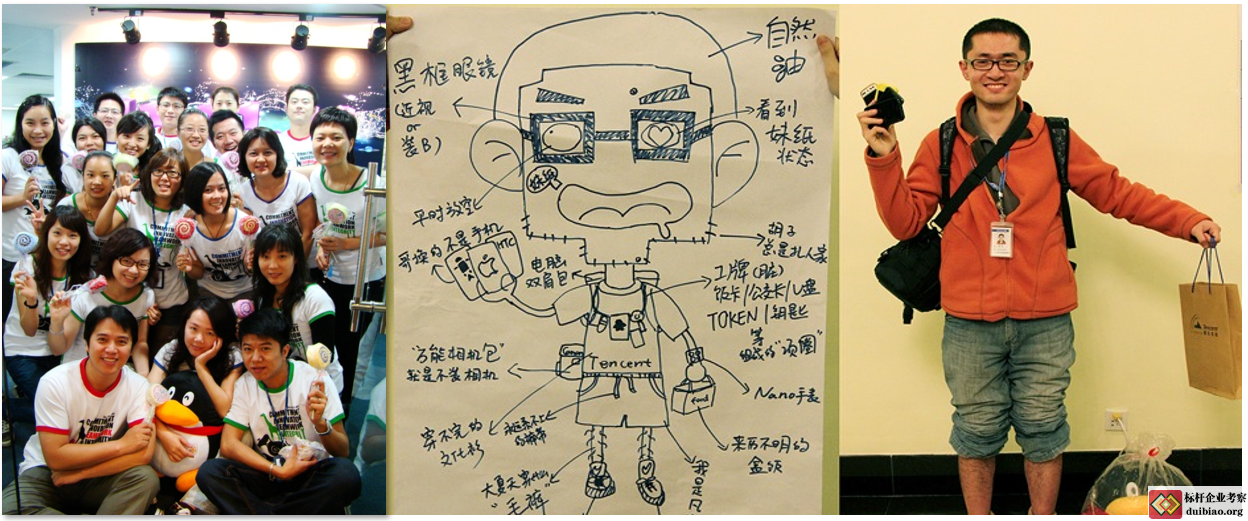 COMMITMENT
INNOVATION
TEAMWORK
黑框眼镜
(近视
or
装B)
自然
油
看到
妹纸
状态
平时放空
哥漫的不是手机
HTC
电脑
双肩包
胡子
总是扎人家
工牌(脏)
饭卡/公交卡/U盘
TOKEN/钥匙
等
组成的"项圈"
"万能相机包"
就是不装相机
Tencent
food
Nano手表
穿不完的
文化衫
来历不明的
盒饭
大夏天穿
"毛裤"
我是凡
Tencent
标杆企业考察
duibiao.org